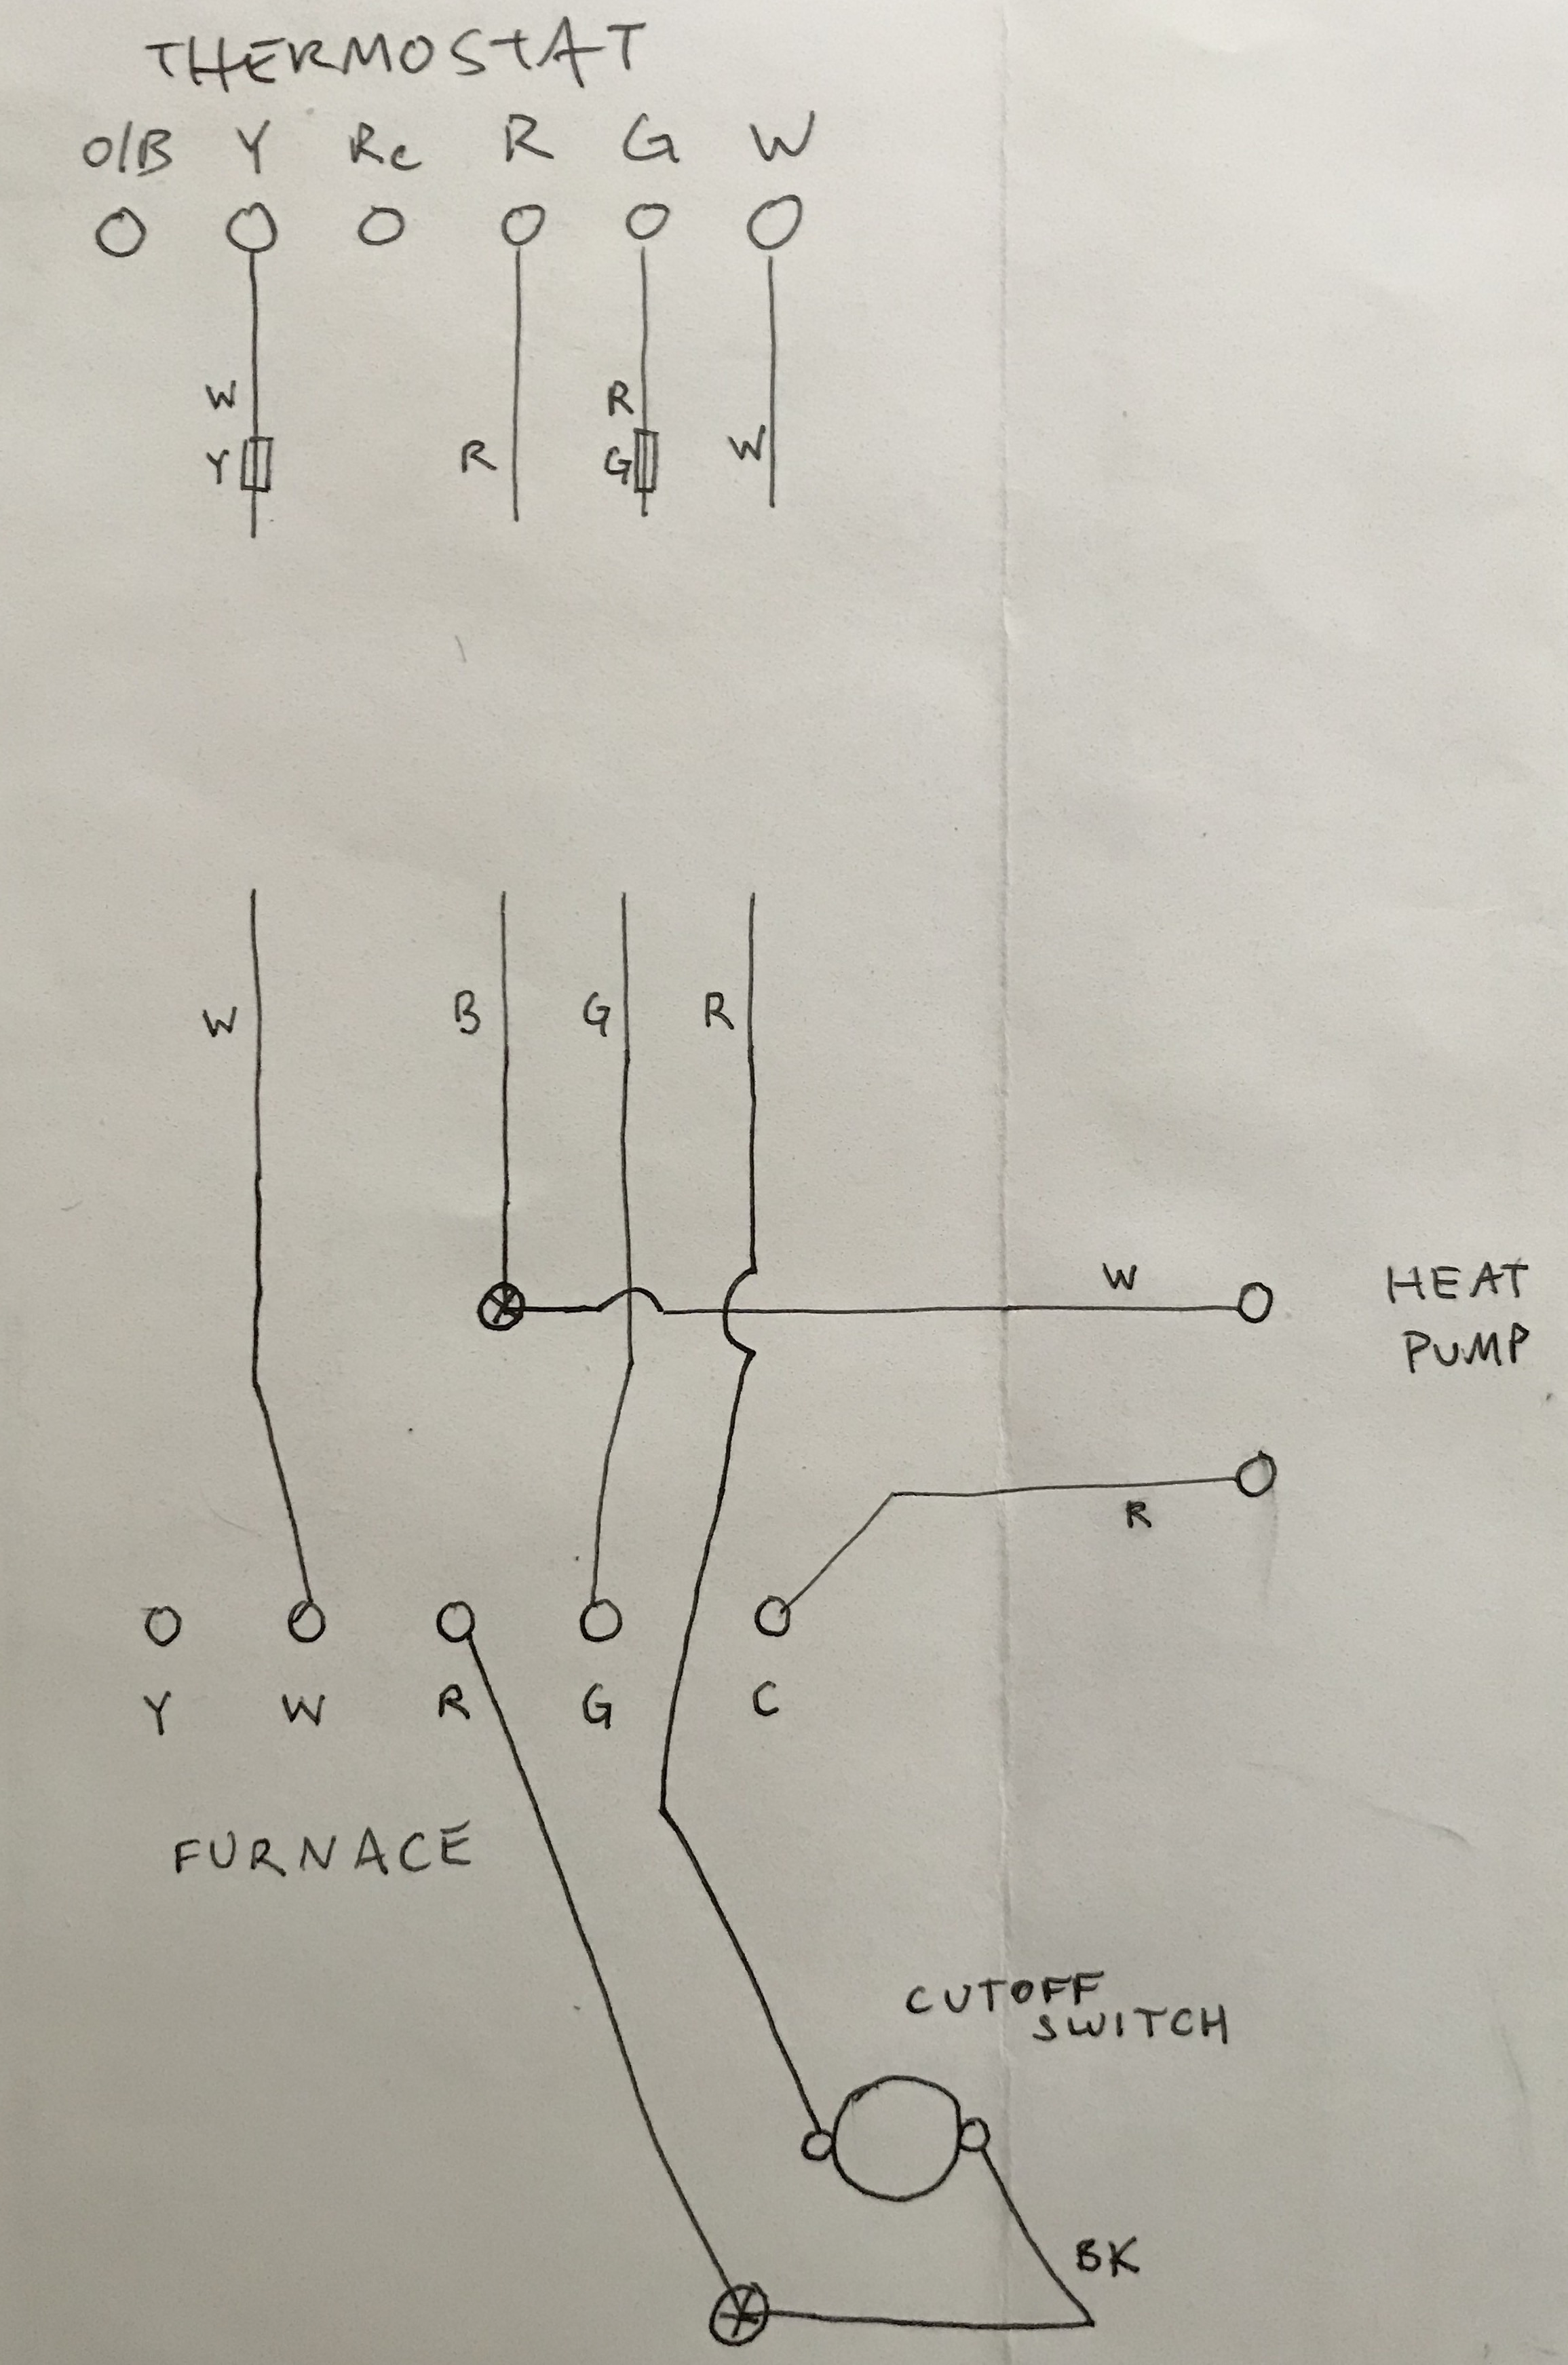 THERMOSTAT
O/B Y Rc R G W
W R
Y R G W
W B G R
W HEAT
PUMP
R
Y W R G C
FURNACE
CUTOFF
SWITCH
BK